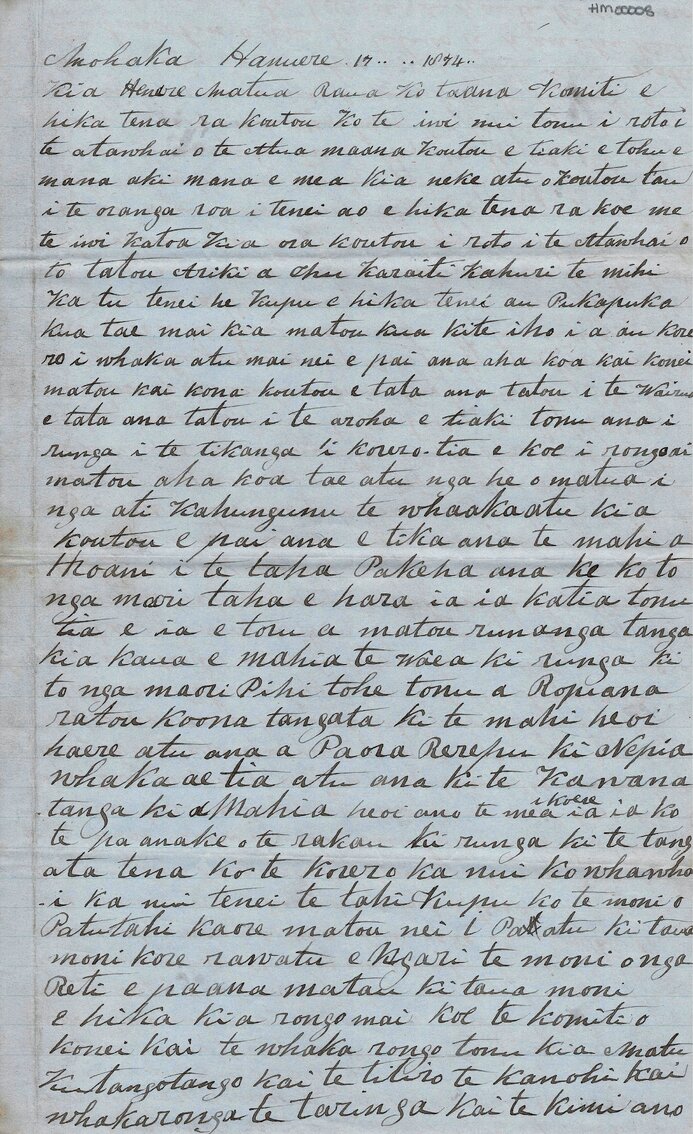 HM00008
Mohaka Hanuere 17.. .. 1874..
Kia Henere Matua Raua ko taana Komiti e
hika tena ra koutou ko te iwi nui tonu i roto i
te atawhai o te Atua maana koutou e tiaki e tohu e
mana aki mana e mea kia neke atu o koutou tau
i te oranga roa i tenei ao e hika tena ra koe me
te iwi katoa kia ora koutou i roto i te Atawhai o
to tatou Ariki a Ihu Karaiti Kahuri te mihi
Ka tu tenei he Kupu e hika tenei au Pukapuka
kua tae mai kia matou kua kite iho i a au kore
ro i whaka atu mai nei e pai ana aha koa kai konei
matou kai kona koutou e tata ana tatou i te Wairua
e tata ana tatou i te aroha e tiaki tonu ana i
runga i te tikanga i korero-tia e koe i rongo ai
matou aha koa tae atu nga he o matua i
nga ati Kahungunu te whaakaatu kia
koutou e pai ana e tika ana te mahi a
Hoani i te taha Pakeha ana ke ko to
nga maori taha e hara ia ia katia tonu
tia e ia e toru a matou runanga tanga
kia kaua e mahia te waea ki runga ki
to nga maori Pihi tohe tonu a Ropiana
ratou koona tangata ki te mahi heoi
haere atu ana a Paora Rerepu ki Nepia
whaka ae tia atu ana ki te Kawana
tanga ki a Mahia heoi ano te mea i koere ia ia ko
te pa anake o te rakau ki runga ki te tang
ata tena ko te korero ka nui ko whawha
-i ka nui tenei te tahi Kupu ko te moni o
Patutahi kaore matou nei i Pa atu ki taua
moni kore rawatu e Ngari te moni o nga
Reti e paana matau ki taua moni
e hika kia rongo mai koe te komiti o
konei kai te whaka rongo tonu kia Matu
Kutangotango kai te titiro te kanohi kai
whakarongo te taringa kai te kimi ano